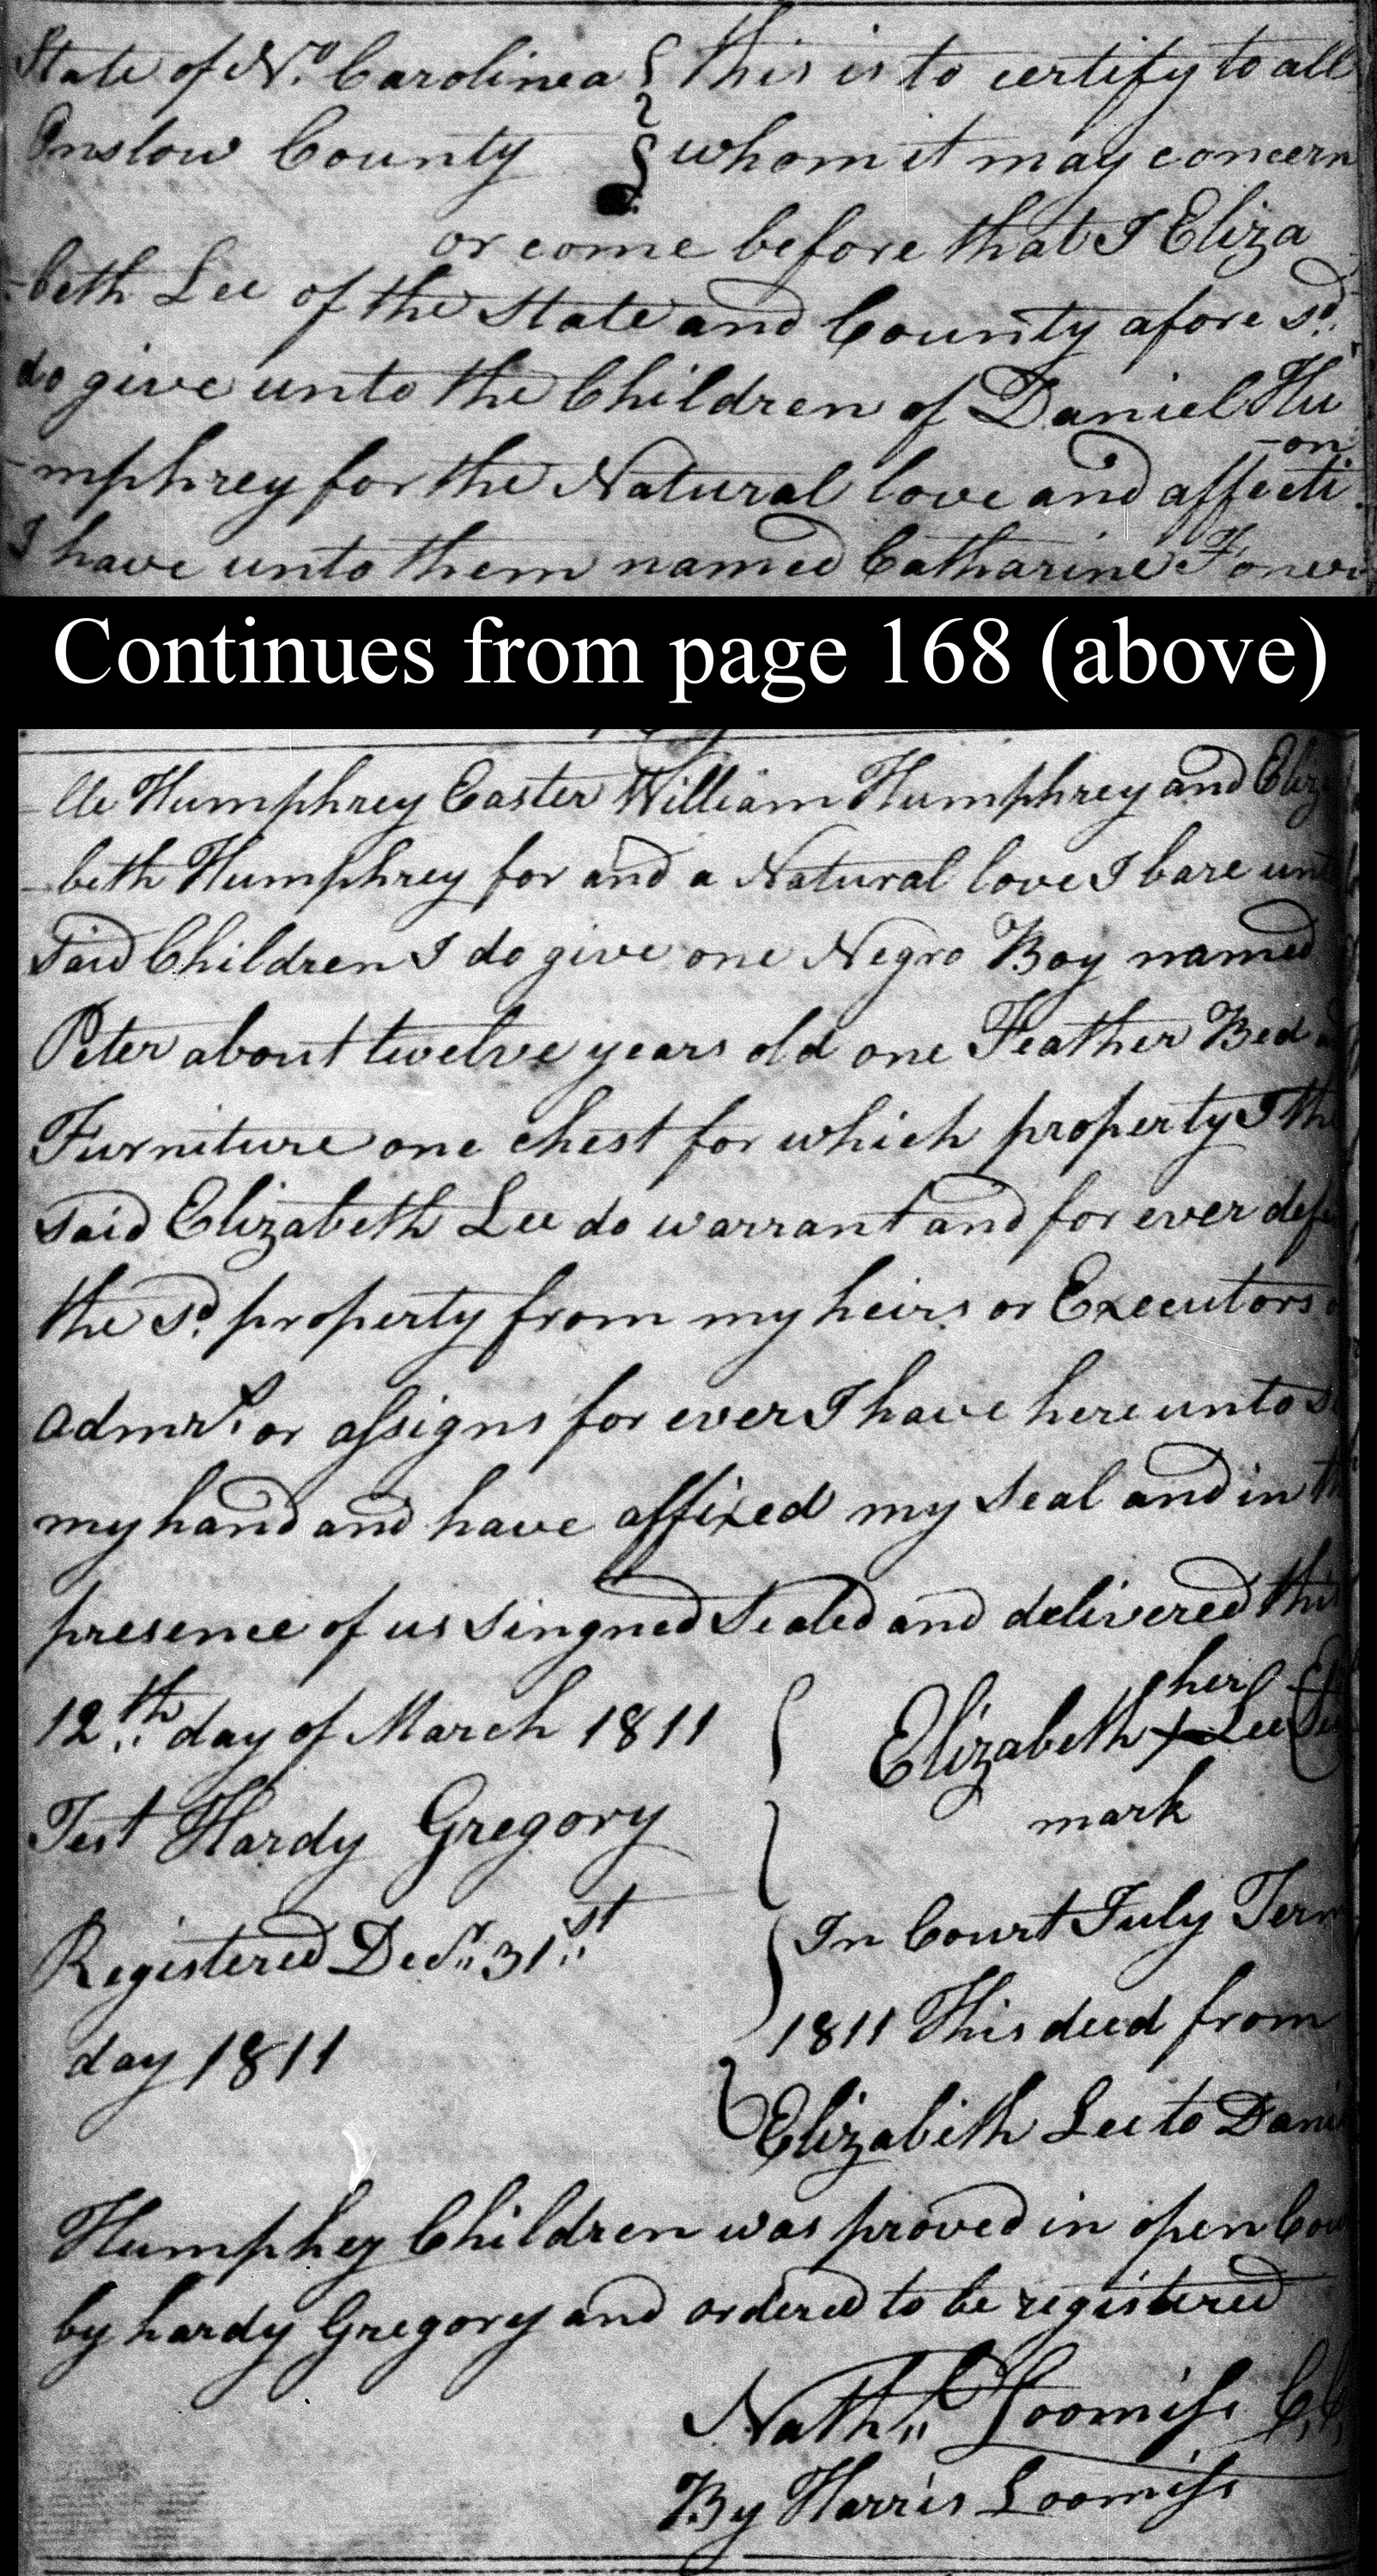 State of No. Carolinea } this is to certify to all
Onslow County } whom it may concern
or come before that I Eliza
-beth Lee of the State and County afore sd.
do give unto the Children of Daniel Hu
-mphrey for the Natural love and affecti
-on
I have unto them named Catharine
Continues from page 168 (above)
Humphrey Easter William Humphrey and Eliz
-beth Humphrey for and a Natural love I bare unt
Said Children I do give one Negro Boy named
Peter about twelve years old one Feather Bed
Furniture one chest for which property I the
said Elizabeth Lee do warrant and for ever def
the sd. property from my heirs or Executors
admrs. or assigns for ever I have here unto s
my hand and have affixed my seal and in th
presence of us singned Sealed and delivered this
12th day of March 1811
her
Elizabeth X Lee
mark
Test Hardy Gregory
Registered Decr. 31st
day 1811
In Court July Term
1811 This deed from
Elizabeth Lee to Dani
Humphey Children was proved in open Cou
by hardy Gregory and ordered to be registered
Nathl. Loomiss C,C,
By Harris Loomiss